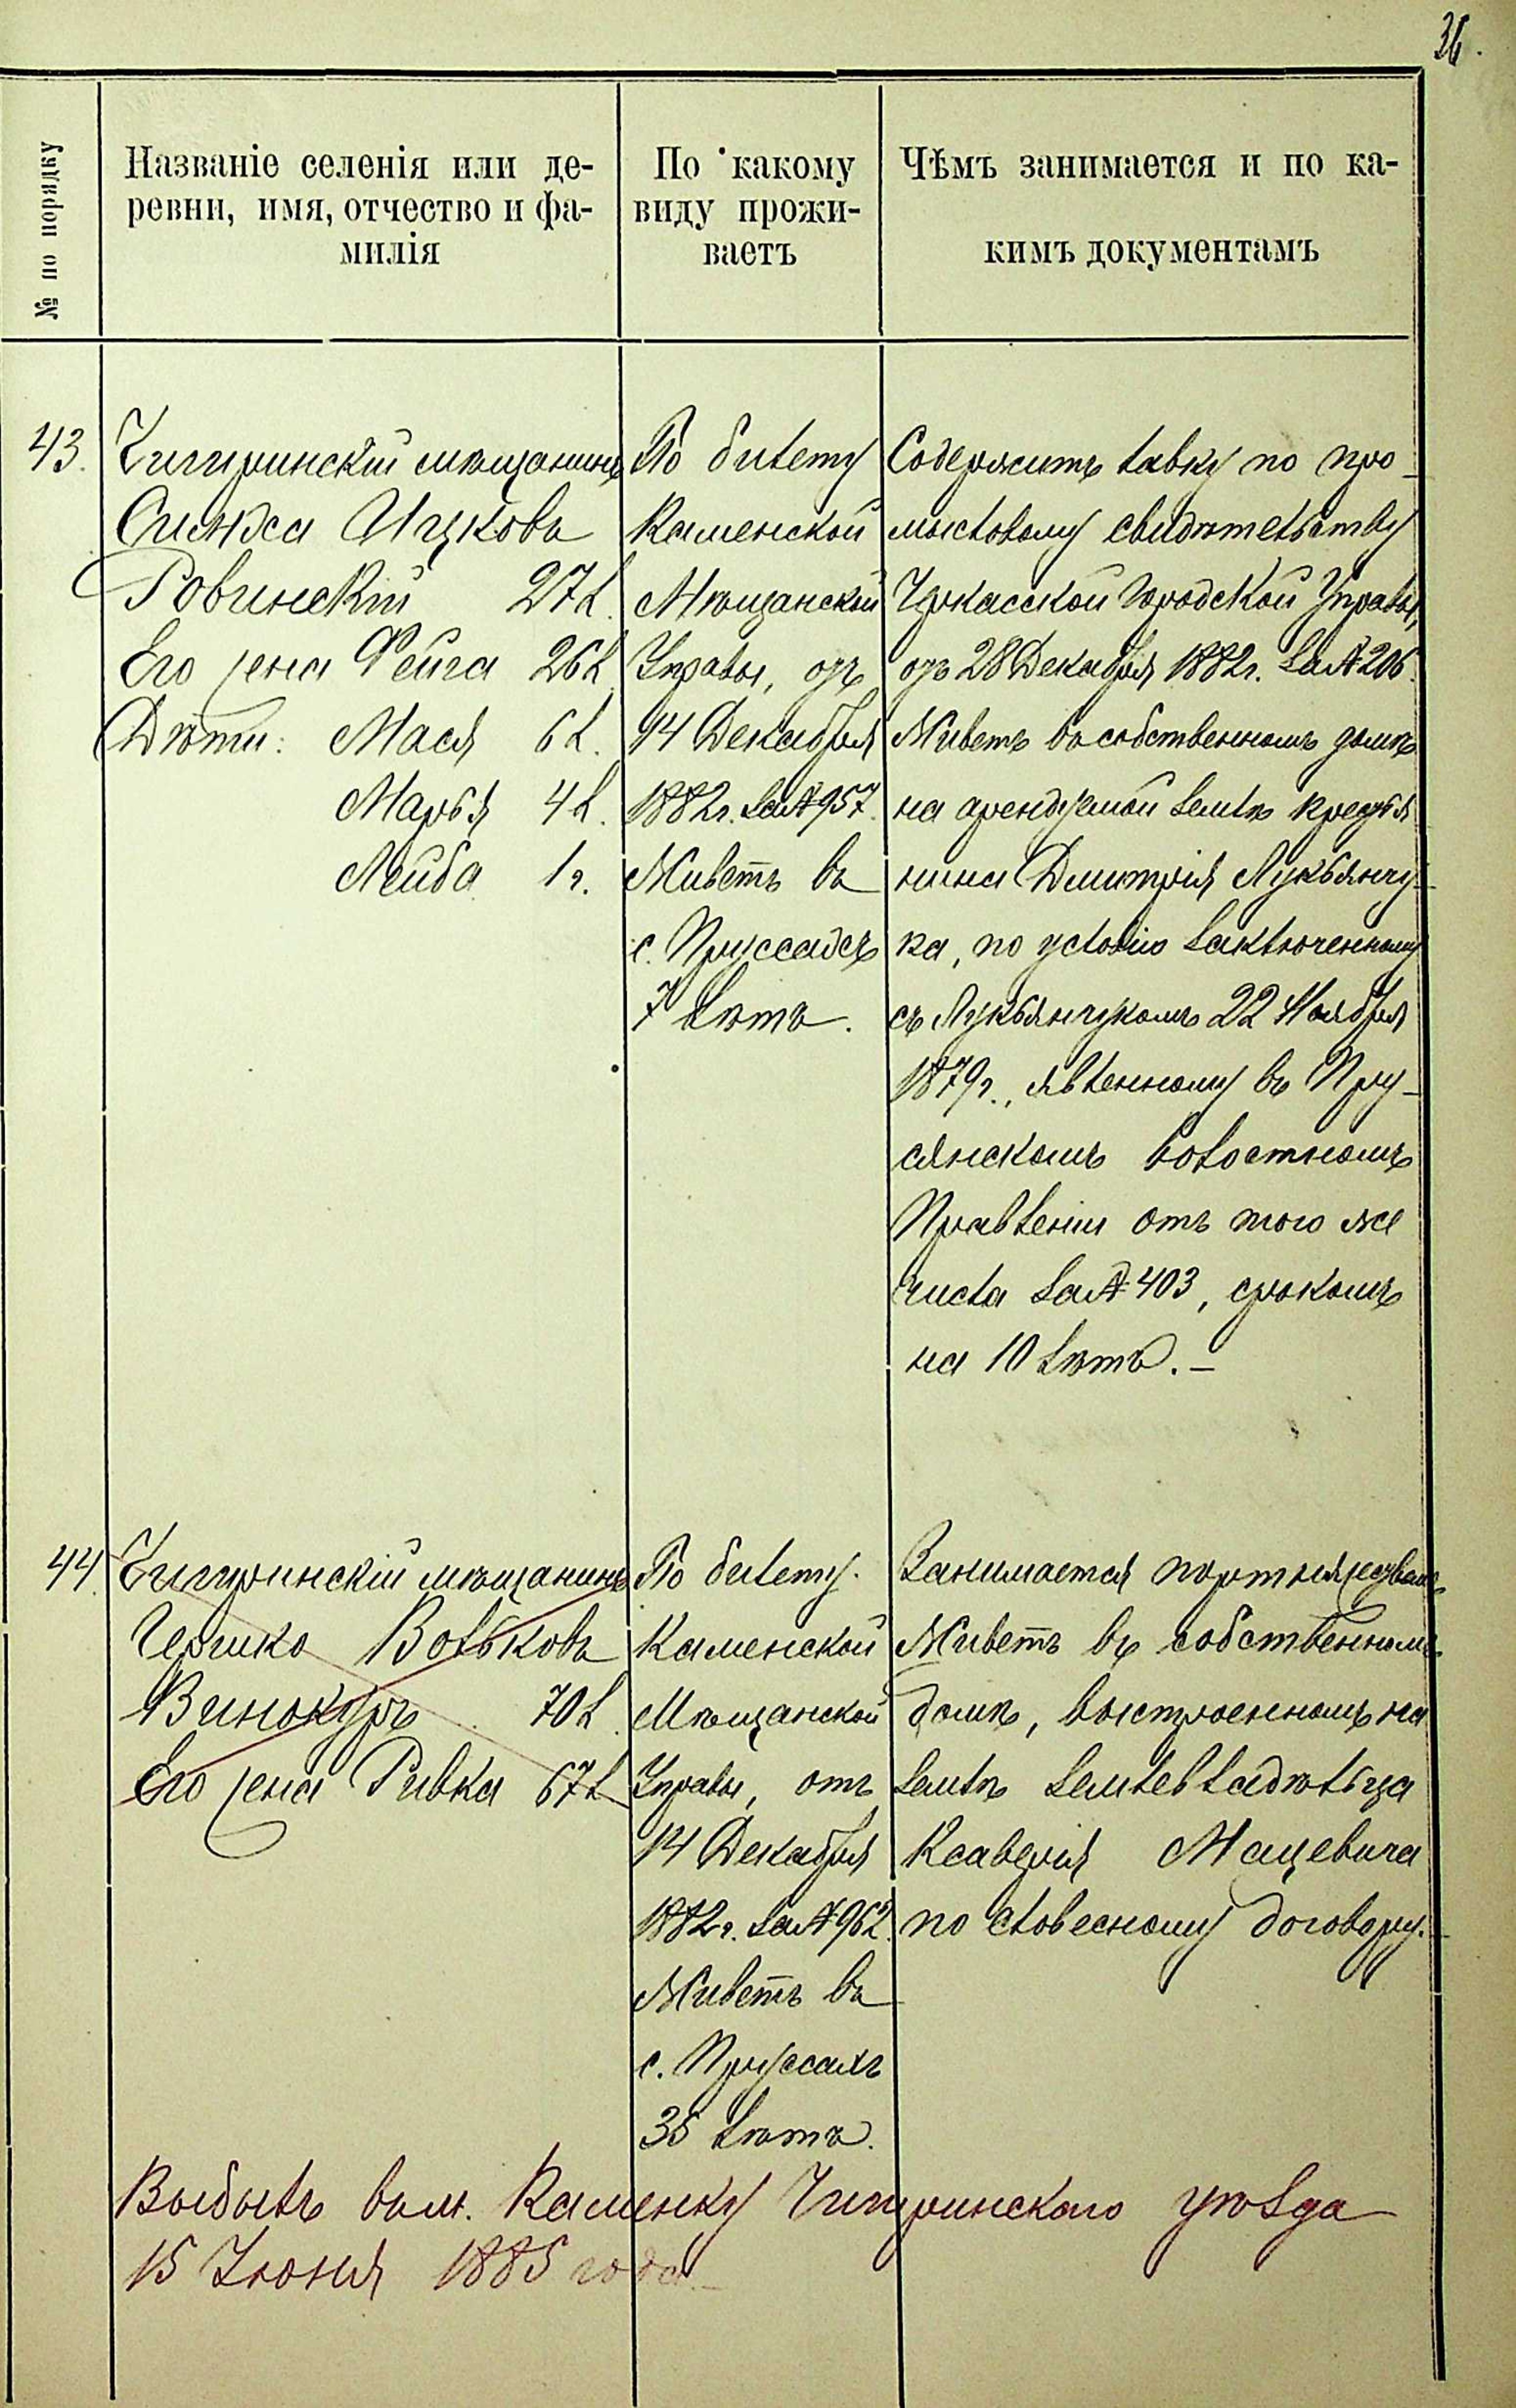 36.
№ по порядку
Названіе селенія или де-
ревни, имя, отчество и фа-
милія
По какому
виду прожи-
ваетъ
Чѣмъ занимается и по ка-
кимъ документамъ
43.
Чигиринскій мѣщанинъ
Ицковъ
Ровинскій 27 л.
Его жена Фейга 26 л.
Дѣти: Мася 6 л.
Марья 4 л.
Лейба 1 г.
По билету
Каменской
Мѣщанской
Управы, отъ
14 Декабря
1882 г. за № 957.
Живетъ въ
с. Пруссахъ
7 лѣтъ.
Содержитъ лавку по про-
мысловому свидѣтельству
Черкасской Городской Управы,
отъ 28 Декабря 1882 г. за № 206.
Живетъ въ собственномъ домѣ
на арендуемой землѣ кресть
нина Дмитрія Лукьянчу-
ка, по условію заключенному
съ Лукьянчукомъ 22 Ноября
1879 г., явленному въ Пру-
сянскомъ волостномъ
Правленіи отъ того же
числа за № 403, срокомъ
на 10 лѣтъ. –
44.
Чигиринскій мѣщанинъ
Гершко Вольковъ
Винокуръ 70 л.
Его жена Ривка 67 л.
По билету
Каменской
Мѣщанской
Управы, отъ
14 Декабря
1882 г. за № 962.
Живетъ въ
с. Пруссахъ
35 лѣтъ.
Занимается
Живетъ въ собственномъ
домѣ, выстроенномъ на
землѣ землевладѣльца
Ксаверія Мацевича
по словесному договору.
Выбылъ въ м. Каменку Чигиринскаго уѣзда
15 Іюня 1885 года. –